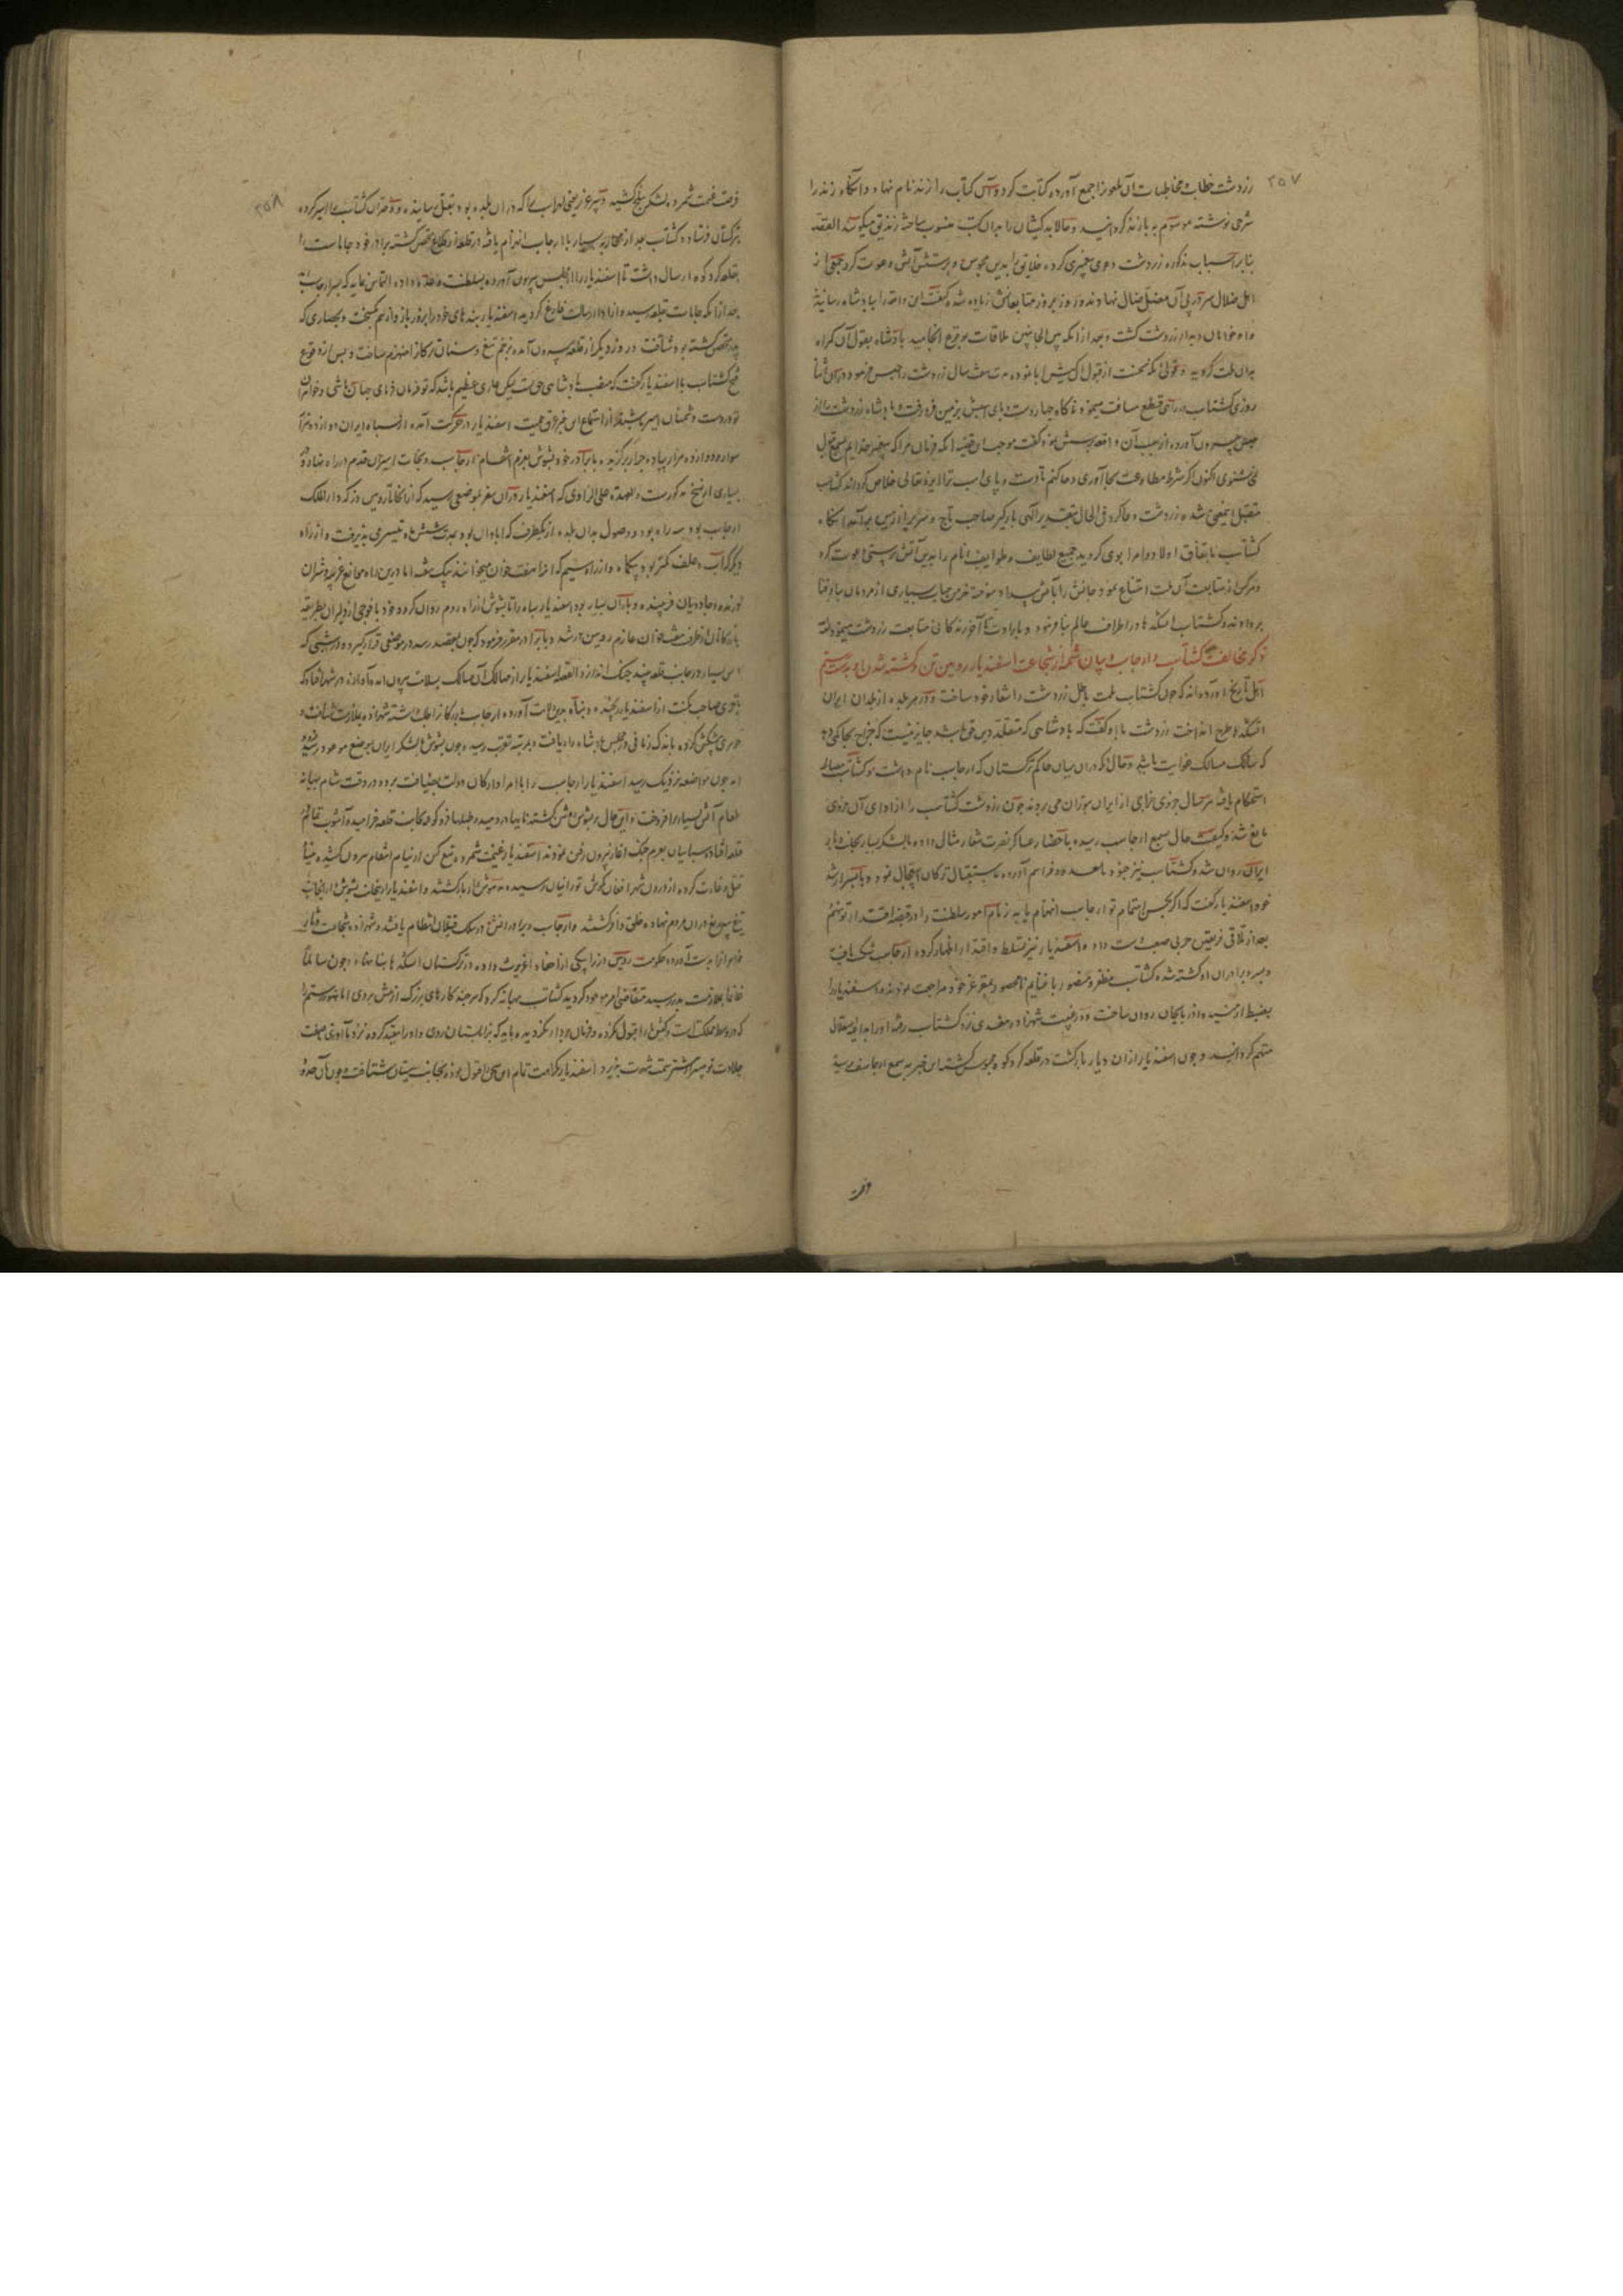 ۲۵۷
زردشت خطاب و مخاطبات آن ملعون را جمع آورده کتابت کرد و آن کتاب را زند نام نهاد و آنگاه زند را
شرحی نوشته موسوم به پازند گردانید و حالا بدکیشان را بدان کتب منسوب ساخته زندیق میگویند القصه
بنابر اسباب مذکوره زردشت دعوی پیغمبری کرده خلایق را بدین مجوس و پرستش آتش دعوت کرد جمعی از
اهل ضلال سر در پی آن مضل ضال نهادند و روز بروز متابعانش زیاده شده کیفیت این واقعه را بپادشاه رسانیدند
و او خواهان دیدار زردشت گشت و بعد از آنکه بین الجانبین ملاقات بوقوع انجامید پادشاه بقول آن گمراه
بدان ملت گروید و قولی آنکه نخست از قبول آن کیش ابا نموده مدت هفت سال زردشت را حبس فرمود و در آن اثنا
روزی گشتاسب در راهی قطع مسافت مینمود ناگاه چهار دست و پای اسبش بزمین فرو رفت و پادشاه زردشت را از
حبس بیرون آورده از سبب آن واقعه پرسش نمود گفت موجب این قضیه آنکه فرمان مرا که پیغمبر خدایم بسمع قبول
نمی شنوی اکنون اگر شرط مطاوعت بجا آوری دعا کنم تا دست و پای اسب ترا ایزد تعالی خلاص گرداند گشتاسب
متقبل این معنی شده زردشت دعا کرد و فی الحال بتقدیر الهی بارگیر صاحب تاج و سریر از زمین برآمد آنگاه
گشتاسب باتفاق اولاد و امرا بوی گرویده جمیع لطایف و طوایف انام را بدین آتش پرستی دعوت کرد
و هر کس از متابعت آن ملت امتناع نمود جانش را بآتش بیداد سوخته خرمن حیات بسیاری از مردمان بباد فنا
برداد و گشتاسب آتشکده ها در اطراف عالم بنا فرمود و بارادت تا آخر زندگانی متابعت زردشت مینمود
ذکر مخالفت گشتاسب و ارجاسب و بیان شمه از شجاعت اسفندیار رویین تن و کشته شدن او بدست رستم
اهل تاریخ آورده اند که چون گشتاسب ملت باطل زردشت را شعار خود ساخت و در هر بلده از بلدان ایران
آتشکده طرح انداخت زردشت با او گفت که پادشاهی که متقلد دین حق باشد جایز نیست که خراج بحاکمی دهد
که سالک مسالک غوایت باشد و حال آنکه در آن میان حاکم ترکستان که ارجاسب نام داشت و گشتاسب
استحکام یافته هر سال جزوی خراجی از ایران بتوران می رود چون زردشت گشتاسب را از ادای آن جزوی
مانع شد و کیفیت حال بسمع ارجاسب رسیده باحضار عساکر نصرت شعار مثال داده با لشکر بسیار بجانب دیار
ایران روان شد و گشتاسب نیز جنود نامعدود فراهم آورده باستقبال ترکان استعجال نمود و با پسر ارشد
خود اسفندیار گفت که اگر بحسن اهتمام تو ارجاسب انهزام یابد زمام امور سلطنت را در قبضه اقتدار تو نهم
بعد از تلاقی فریقین حربی صعب دست داده اسفندیار نیز تسلط و اقتدار اظهار کرده ارجاسب شکست یافت
و پسر و برادران او کشته شده گشتاسب مظفر و منصور با غنایم نامحصور بمقر عز خود مراجعت نمودند و اسفندیار را
بضبط ارمنیه و آذربایجان روان ساخت و در غیبت شهزاده مفسدی نزد گشتاسب رفته او را بداعیه استقلال
متهم گردانید و چون اسفندیار از آن دیار بازگشت در قلعه گردکوه محبوس گشته این خبر بسمع ارجاسب رسید
فرصت
۲۵۸
فرصت غنیمت شمرده لشکر ببلخ کشید و پسر عزیزش لهراسب را که در آن بلده بود بقتل رسانیده و دو دختران گشتاسب را اسیر کرده
بترکستان فرستاد و گشتاسب بعد از محاربه بسیار با ارجاسب انهزام یافته در قلعه از قلاع متحصن گشته برادر خود جاماسب را
بقلعه گردکوه ارسال داشت تا اسفندیار را از مجلس بیرون آورده بسلطنت وعده داده التماس نماید که بسر ارجاسب
بعد از آنکه جاماسب بقلعه رسید و از ادای رسالت فارغ گردید اسفندیار بندهای خود را بزور بازو از هم گسیخت و بحصاری که
پدر متحصن گشته بود شتافت و روز دیگر از قلعه بیرون آمده بزخم تیغ و سنان ترکان را منهزم ساخت و پس از وقوع
فتح گشتاسب با اسفندیار گفت که منصب پادشاهی حق تست لیکن عاری عظیم باشد که تو فرمان فرمای جهان باشی و خواهران
تو در دست دشمنان اسیر باشند از استماع این خبر عرق حمیت اسفندیار در حرکت آمده از سپاه ایران دوازده هزار
سوار و دوازده هزار پیاده جرار برگزید و با برادر خود پشوتن بعزم انتقام ارجاسب و نجات اسیران قدم در راه نهاد و در
بسیاری از نسخ مذکورست و العهدة علی الراوی که اسفندیار در آن سفر بموضعی رسید که از آنجا تا رویین دز که دارالملک
ارجاسب بود سه راه بود و وصول بدان بلده از یکطرف که آبادان بود بعد شش ماه تیسر می پذیرفت و از راه
دیگر که آب و علف کمتر بود بیکماه و از راه سیم که آنرا هفت خوان میخواندند بیک هفته اما درین راه موانع غریبه و شیران
درنده و جادویان فریبنده و باران بسیار بود اسفندیار سپاه را با پشوتن از راه دوم روان کرد و خود با فوجی از دلیران بطریقه
بازرگانان از طرف هفت خوان عازم رویین دز شد و با برادر مقرر فرمود که چون بمقصد رسد در موضعی قرار گیرد و در شبی که
آتش بسیار در جانب قلعه بیند جنگ اندازد القصه اسفندیار از مهالک آن مسالک بسلامت بیرون آمده آوازه در شهر افتاد که
تاجری صاحب مکنت از اسفندیار گریخته و پناه بدین مامن آورده ارجاسب بازرگان را طلب داشته شهزاده بملازمت شتافته و
جوهری پیشکش کرده باندک زمانی در مجلس پادشاه راه یافت و بمرتبه تقرب رسید و چون پشوتن با لشکر ایران بموضع موعود رسید و
آمد چون مواضعه نزدیک رسید اسفندیار ارجاسب را با امرا و ارکان دولت بضیافت برد و در وقت شام ببهانه
طعام آتش بسیار برافروخت و این حال بر پشوتن روشن گشته نایها در دمید و طبلها فرو کوفته بجانب قلعه خرامید و آشوب تمام در
قلعه افتاد و سپاهیان بعزم جنگ آغاز بیرون رفتن نمودند اسفندیار غنیمت شمرده تیغ کین از نیام انتقام بیرون کشیده بنیاد
قتل و غارت کرده از درون شهر افغان بگوش تورانیان رسیده مدهوش وار بازگشتند و اسفندیار از یکجانب پشوتن از یکجانب
تیغ بیدریغ در آن مردم نهاده خلقی را کشتند و ارجاسب و برادرانش در سلک قتیلان انتظام یافتند و شهزاده بشجاعت دثار
خواهران را بدست آورده حکومت رویین دز را بیکی از احفاد اغریرث داده در ترکستان آتشکده ها بنا نهاد و چون سالماً
غانماً بملازمت پدر رسید متقاضی امر موعود گردید گشتاسب بهانه کرد که هر چند کارهای بزرگ از پیش بردی اما هنوز رستم را
که در وسط مملکت است و کیش ما را قبول نکرده و فرمان بردار نگردیده و باید که بزابلستان روی و او را مقید کرده نزد ما آوری صفت
جلادت تو بیشتر از پیشتر سمت شهرت پذیرد اسفندیار بکراهت تمام این سخن را قبول نموده بجانب سیستان شتافت و چون بآن حدود